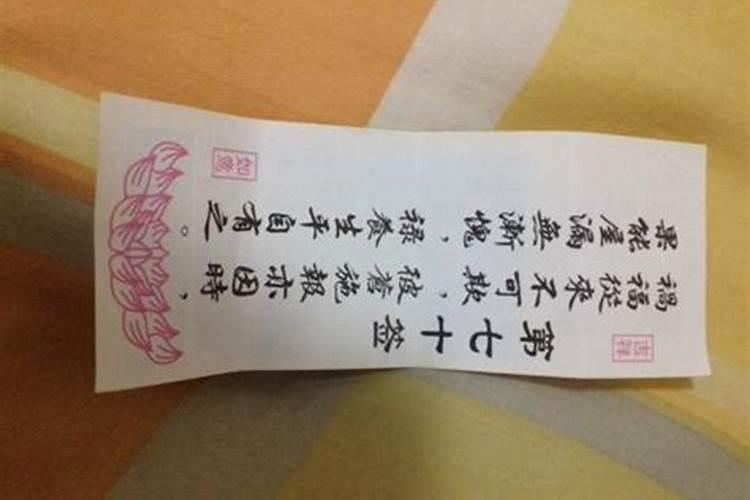 吉祥
第七十签
禍福從來不可欺，彼蒼施報亦因時，
果能屋漏無漸愧，禄養生平自有之。
如意